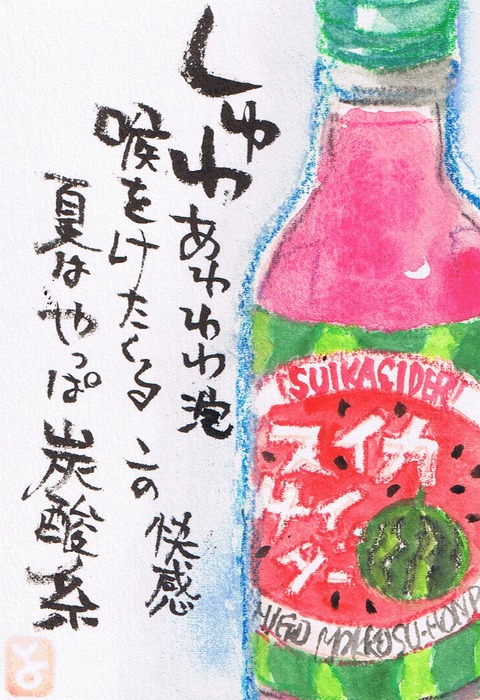 しゅわ あわわわ泡
喉をけたくる この 快感
夏はやっぱ 炭酸系
SUIKACIDER
スイカ
サイ
ダー
HIGO MOKKOSU-HONP